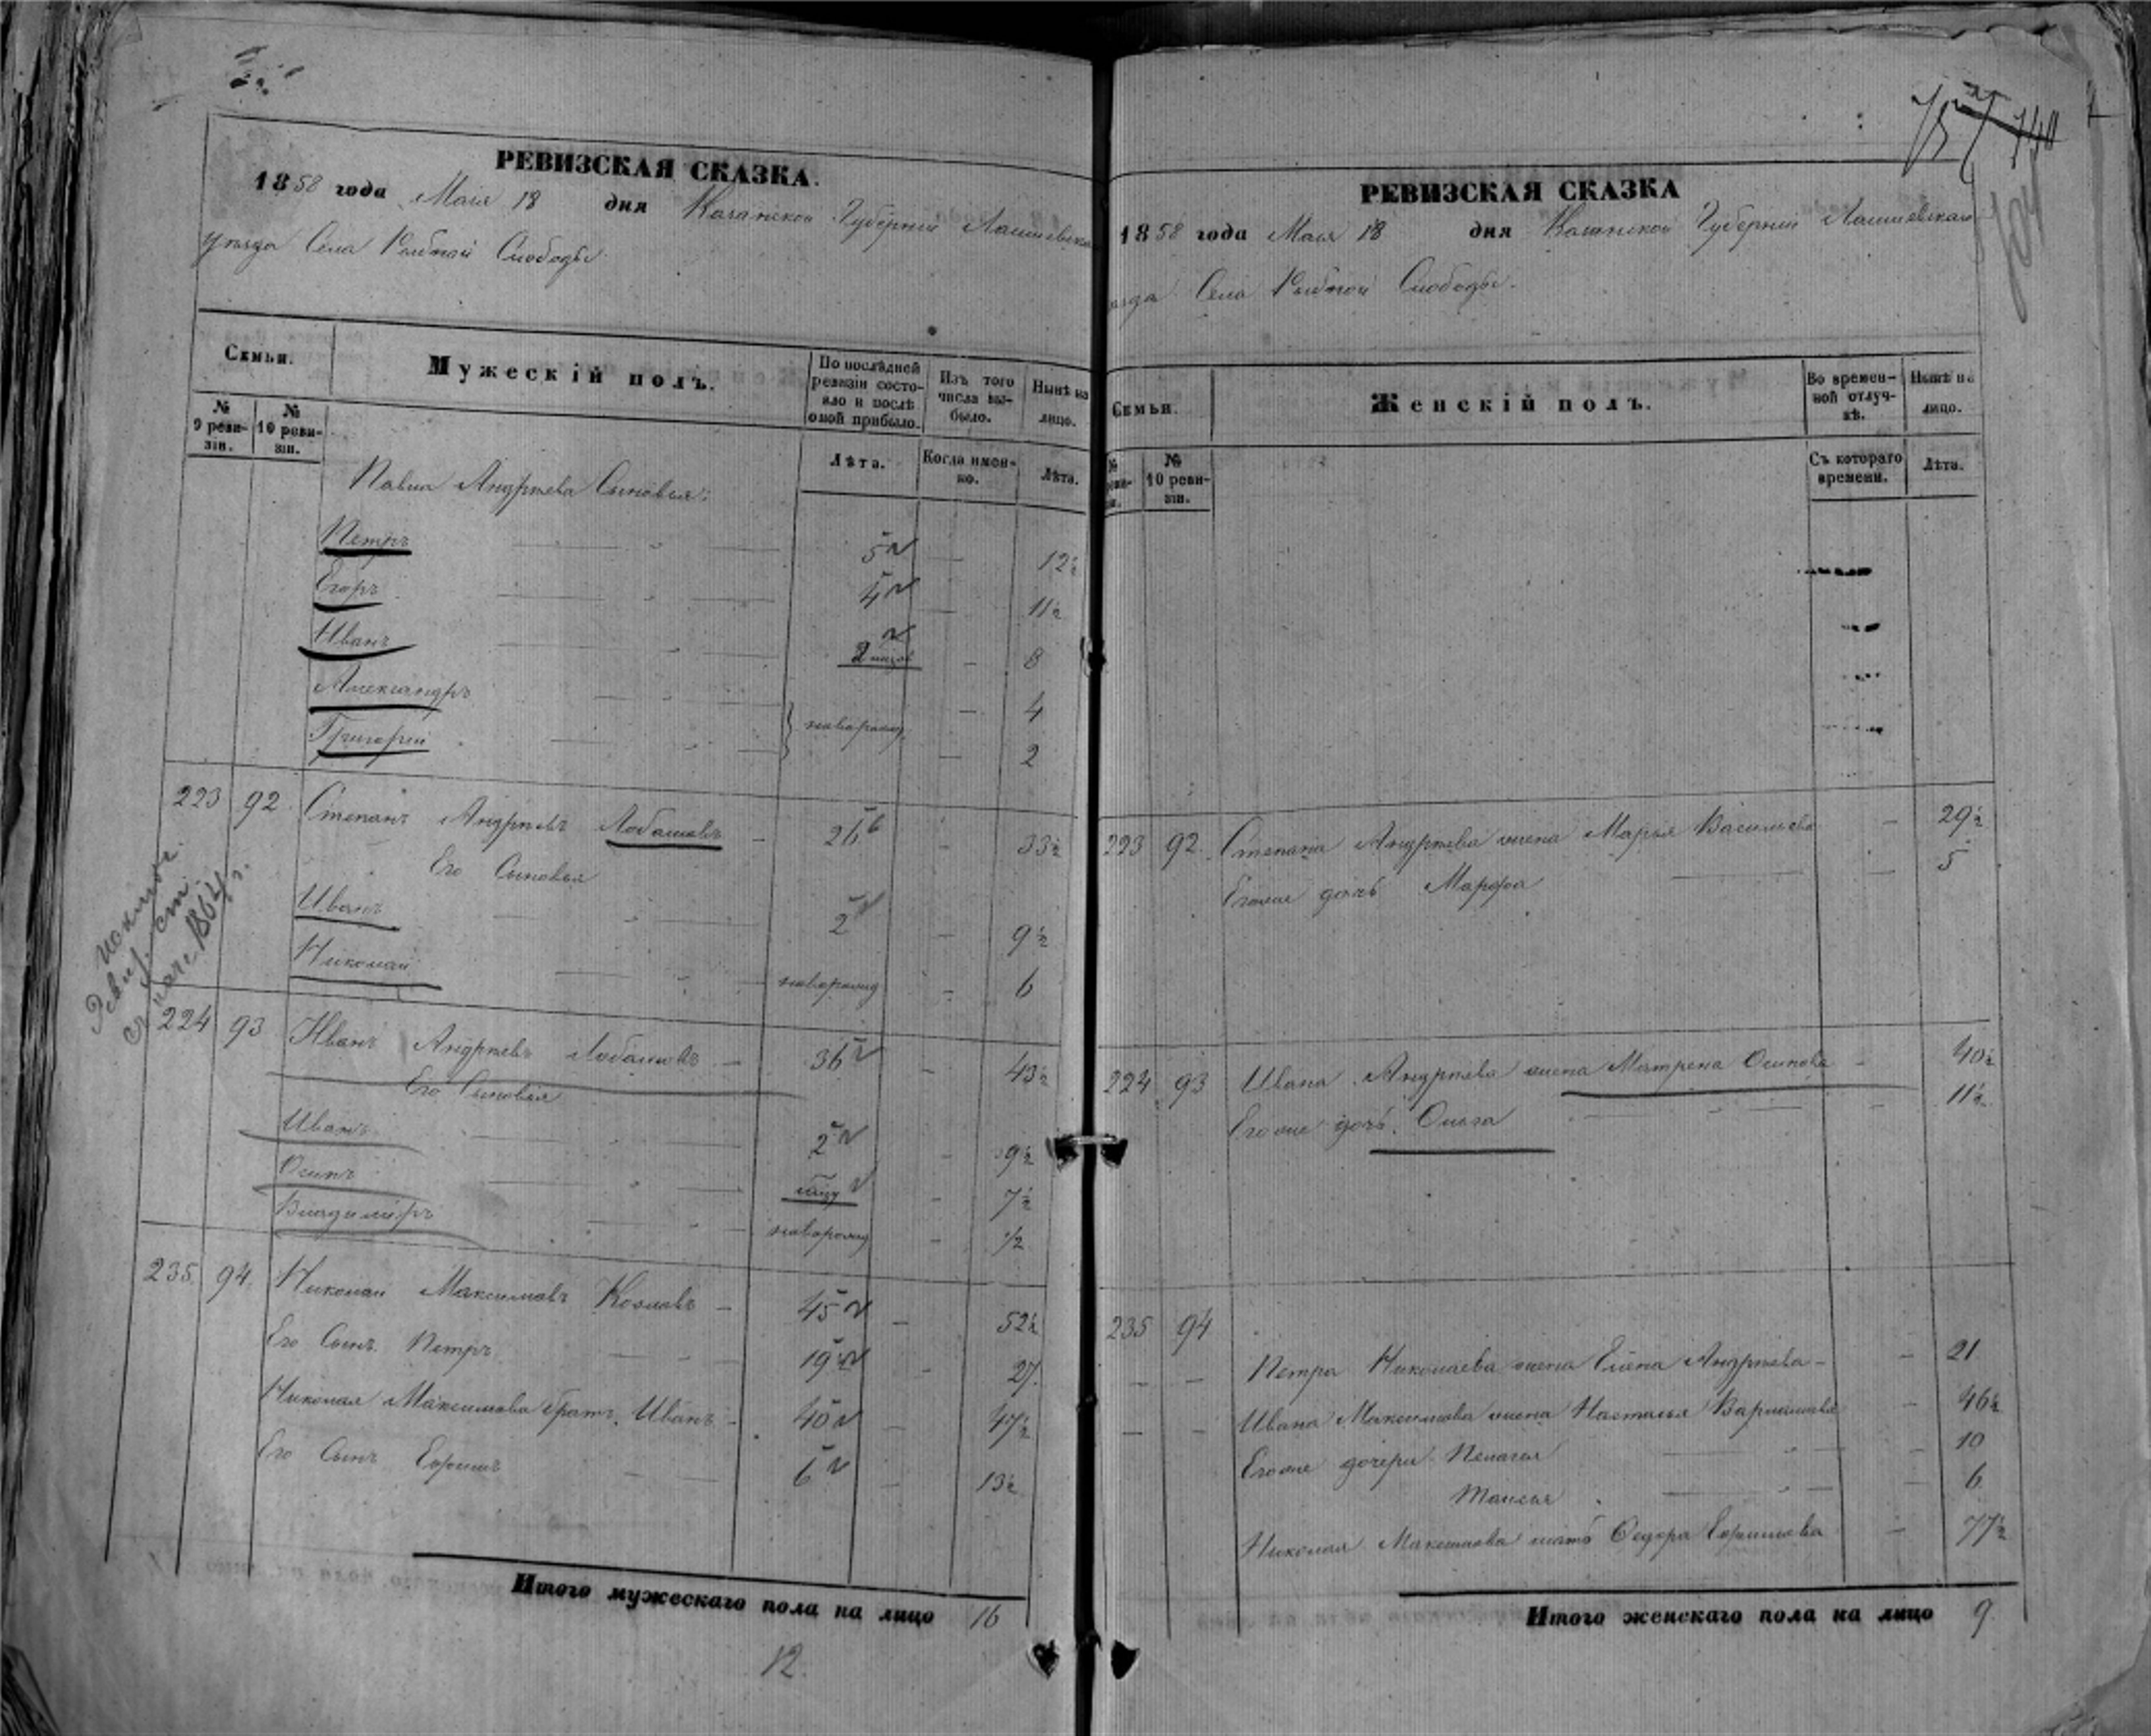 РЕВИЗСКАЯ СКАЗКА.
1858 года Маія 18 дня Казанской Губерніи Лаишевскаго
уѣзда Села Рыбной Слободы.
Семьи.
Мужескій полъ.
По послѣдней ревизіи состояло и послѣ оной прибыло.
Изъ того числа выбыло.
Нынѣ на лицо.
№ 9 ревизіи.
№ 10 ревизіи.
Лѣта.
Когда именно.
Лѣта.
Павла Андреева Сыновья:
Петръ 5 12½
Егоръ 4 11½
Иванъ 2 8
Александръ новорожд. 4
Григорій 2
223 92 Степанъ Андреевъ Лобашовъ 26 33½
Его Сыновья
Иванъ 2 9½
Николай новорожд 6
Ревиз. ст.
1864 г.
224 93 Иванъ Андреевъ Лобашовъ 36 43½
Его Сыновья
Иванъ 2 9½
Осипъ 7½
Владиміръ новорожд ½
235. 94. Николай Максимовъ Козловъ 45 52½
Его Сынъ Петръ 19 27.
Николая Максимова братъ Иванъ 40 47½
Его Сынъ Ефимъ 6 13½
Итого мужескаго пола на лицо 16
12.
РЕВИЗСКАЯ СКАЗКА
1858 года Маія 18 дня Казанской Губерніи Лаишевскаго
уѣзда Села Рыбной Слободы.
Семьи.
Женскій полъ.
Во временной отлучкѣ.
Нынѣ на лицо.
№ 10 ревизіи.
Съ котораго времени.
Лѣта.
223 92. Степана Андреева жена Марья Васильева 29½
Егоже дочь Марфа 5
224 93 Ивана Андреева жена Матрена Осипова 40½
Егоже дочь Ольга 11½
235 94
Петра Николаева жена Елена Андреева 21
Ивана Максимова жена Настасья Варламова 46½
Егоже дочери Пелагея 10
Таисья 6
Николая Максимова мать Федора Ефимова 77½
Итого женскаго пола на лицо 9.